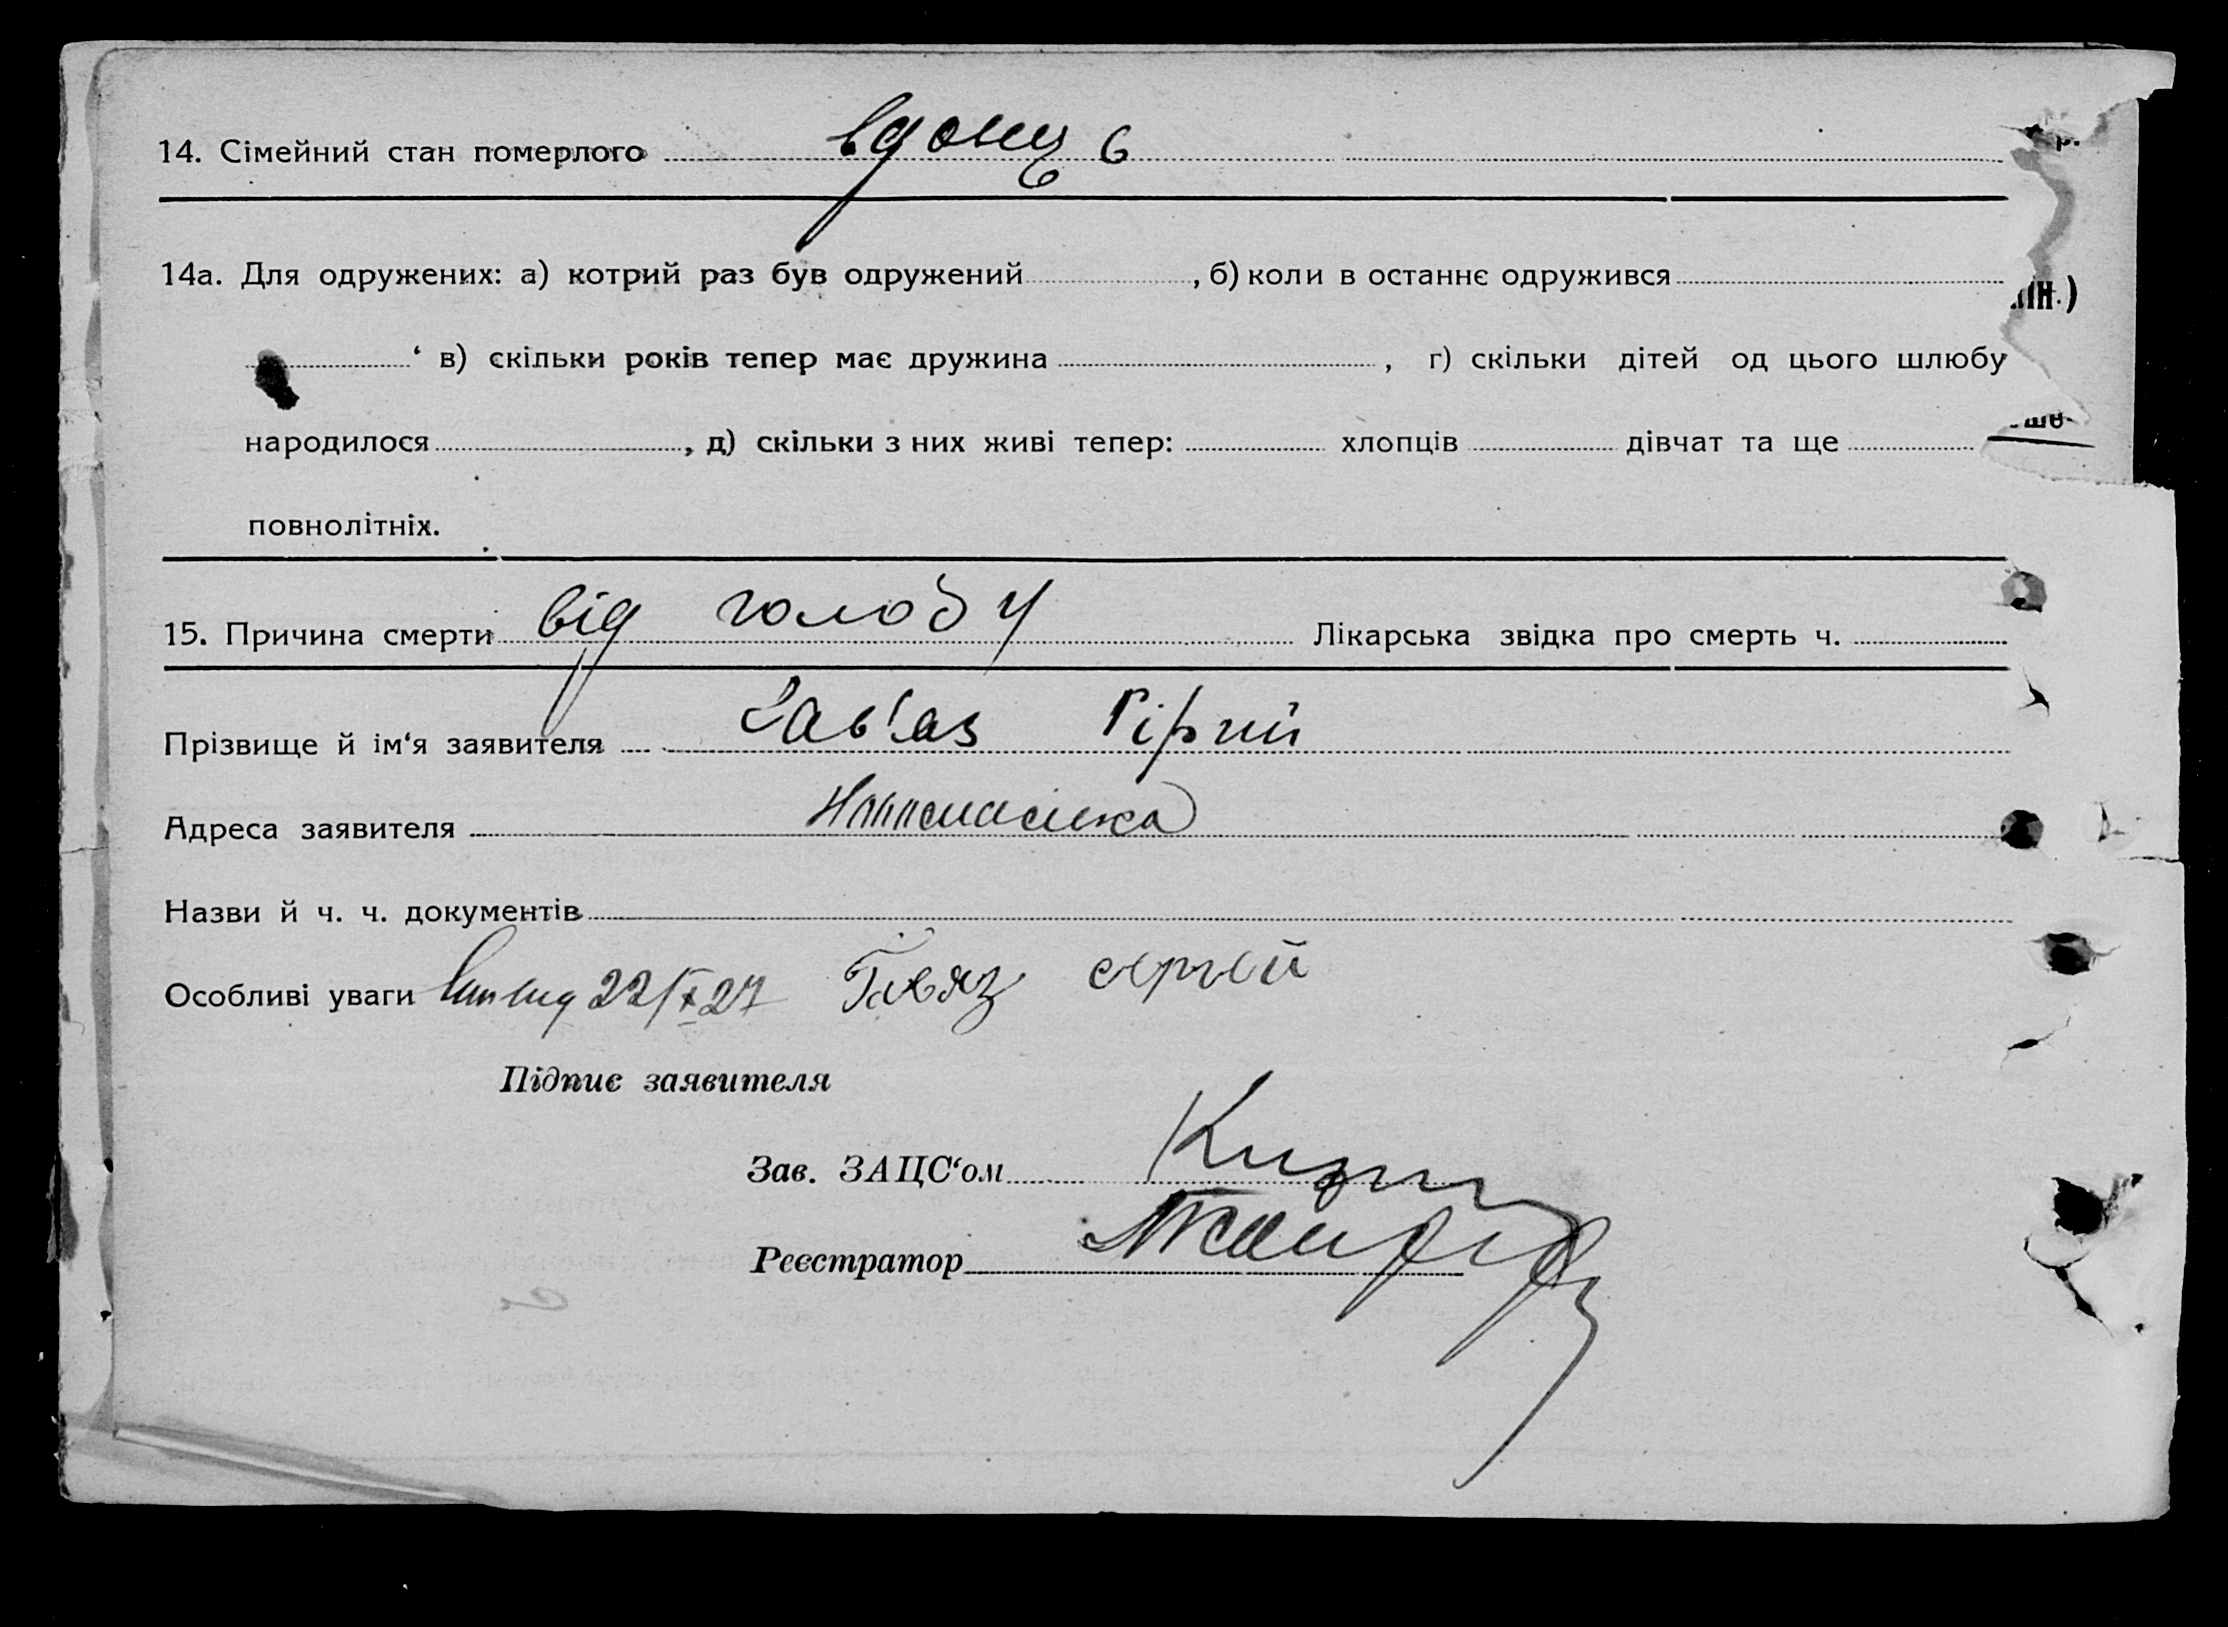 14. Сімейний стан померлого вдовець
р.
14а. Для одружених: а) котрий раз був одружений , б) коли в останнє одружився
ін.)
‘ в) скільки років тепер має дружина , г) скільки дітей од цього шлюбу
народилося , д) скільки з них живі тепер: хлопців дівчат та ще
повнолітніх.
15. Причина смерти від голоду Лікарська звідка про смерть ч.
Прізвище й ім‘я заявителя
Адреса заявителя
Назви й ч. ч. документів
Особливі уваги 22/X 27
Підпис заявителя
Зав. ЗАЦС‘ом
Реєстратор